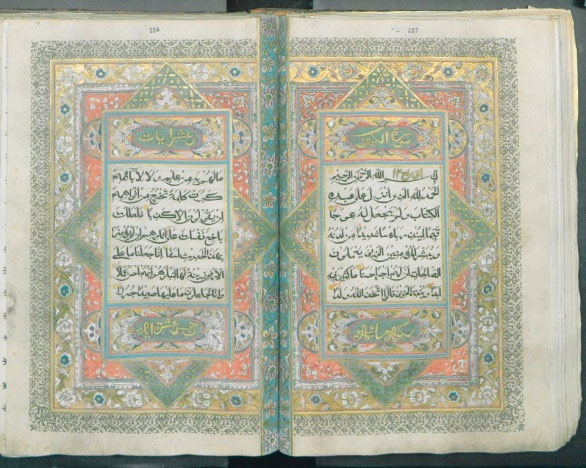 257
الله الرحمن الرحيم
الحمد لله الذي أنزل على عبده
الكتاب ولم يجعل له عوجا
قيما لينذر بأسا شديدا من لدنه
ويبشر المؤمنين الذين يعملون
الصالحات أن لهم أجرا حسنا ماكثين فيه
أبدا وينذر الذين قالوا اتخذ الله ولدا
258
عشر ايات
ما لهم به من علم ولا لابائهم
كبرت كلمة تخرج من أفواههم
إن يقولون إلا كذبا فلعلك
باخع نفسك على آثارهم إن لم يؤمنوا
بهذا الحديث أسفا إنا جعلنا ما على
الأرض زينة لها لنبلوهم أيهم أحسن عملا
وإنا لجاعلون ما عليها صعيدا جرزا